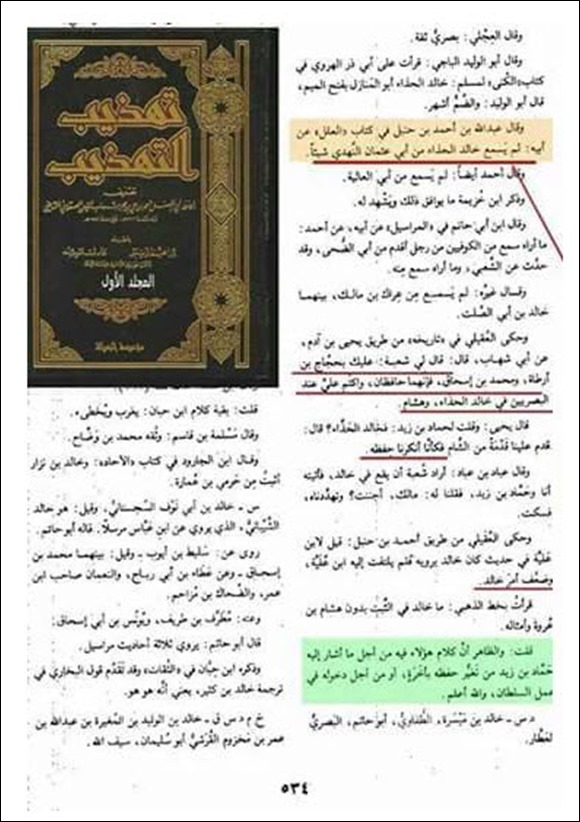 وقال العِجْلي: بصريٌّ ثقة.
وقال أبو الوليد الباجي: قرأت على أبي ذر الهروي في
كتاب «الكُنى» لمسلم: خالد الحذاء أبو المَنازل بفتح الميم،
قال أبو الوليد: والضَّمُّ أشهر.
وقال عبدالله بن أحمد بن حنبل في كتاب «العلل» عن
أبيه: لم يَسمع خالد الحذاء من أبي عثمان النَّهدي شيئاً.
وقال أحمد أيضاً: لم يَسمع من أبي العالية.
وذكر ابن خُزيمة ما يوافق ذلك ويَشْهد له.
وقال ابن أبي حاتم في «المراسيل» عن أبيه، عن أحمد:
ما أراه سمع من الكوفيين من رجل أقدم من أبي الضُّحى، وقد
حدَّث عن الشَّعْبي، وما أراه سمع منه.
وقال غيرُه: لم يَسمع مِن عِراك بن مالك، بينهما
خالد بن أبي الصَّلت.
وحكى العُقيلي في «تاريخه» من طريق يحيى بن آدم،
عن أبي شهاب، قال: قال لي شعبة: عليك بحجَّاج بن
أرطاة، ومحمد بن إسحاق، فإنهما حافظان، واكتم عليَّ عند
البَصريين في خالد الحذاء، وهشام.
قال يحيى: وقلت لحماد بن زيد: فخالد الحَذَّاء؟ قال:
قدم علينا قَدْمةً من الشَّام فكأنَّا أنكرنا حفظه.
وقال عباد بن عباد: أراد شعبة أن يقع في خالد، فأتيته
أنا وحَمَّاد بن زيد، فقلنا له: مالك، أجننت؟ وتهدَّدناه،
فسكت.
وحكى العُقيلي من طريق أحمد بن حنبل: قيل لابن
عُليَّة في حديث كان خالد يرويه فلم يلتفت إليه ابن عُلَيَّة،
وضعَّف أمرَ خالد.
قرأتُ بخط الذهبي: ما خالد في الثَّبْتِ بدون هشام بن
عُروة وأمثاله.
قلت: والظاهر أنَّ كلام هؤلاء فيه من أجل ما أشار إليه
حَمَّاد بن زيد من تَغيُّر حفظه بأَخَرَةٍ، أو من أجل دخوله في
عمل السلطان، والله أعلم.
د س ـ خالد بن مَيْسَرة، الطُّفاويُّ، أبو حاتم، البَصريُّ
لعَطَّار.
تهذيب
التهذيب
المجلد الأول
قلت: بقية كلام ابن حبان: يغرب ويُخطىء.
وقال مَسْلمة بن قاسم: وثَّقه محمد بن وَضَّاح.
وقال ابن الجارود في كتاب «الآحاد»: وخالد بن نزار
أثبتُ مِن حَرمي بن عُمارة.
س ـ خالد بن أبي نَوْف السِّجستانيُّ، وقيل: هو خالد
الشَّيْبانيُّ، الذي يروي عن ابن عَبَّاس مرسلاً. قاله أبو حاتم.
روى عن: سَليط بن أيوب ـ وقيل: بينهما محمد بن
إسحاق ـ وعن عَطاء بن أبي رباح، والنعمان صاحب ابن
عمر، والضَّحاك بن مُزاحم.
وعنه: مُطَرِّف بن طريف، ويُونُس بن أبي إسحاق.
قال أبو حاتم: يروي ثلاثة أحاديث مراسيل.
وذكره ابن حِبَّان في «الثقات» وقد تَقَدَّم قول البخاري في
ترجمة خالد بن كثير، يعني أنَّه هو هو.
خ م د س ق ـ خالد بن الوليد بن المُغيرة بن عبدالله بن
عمر بن مَخزوم القُرَشيُّ، أبو سُليمان، سيف الله.
٥٣٤